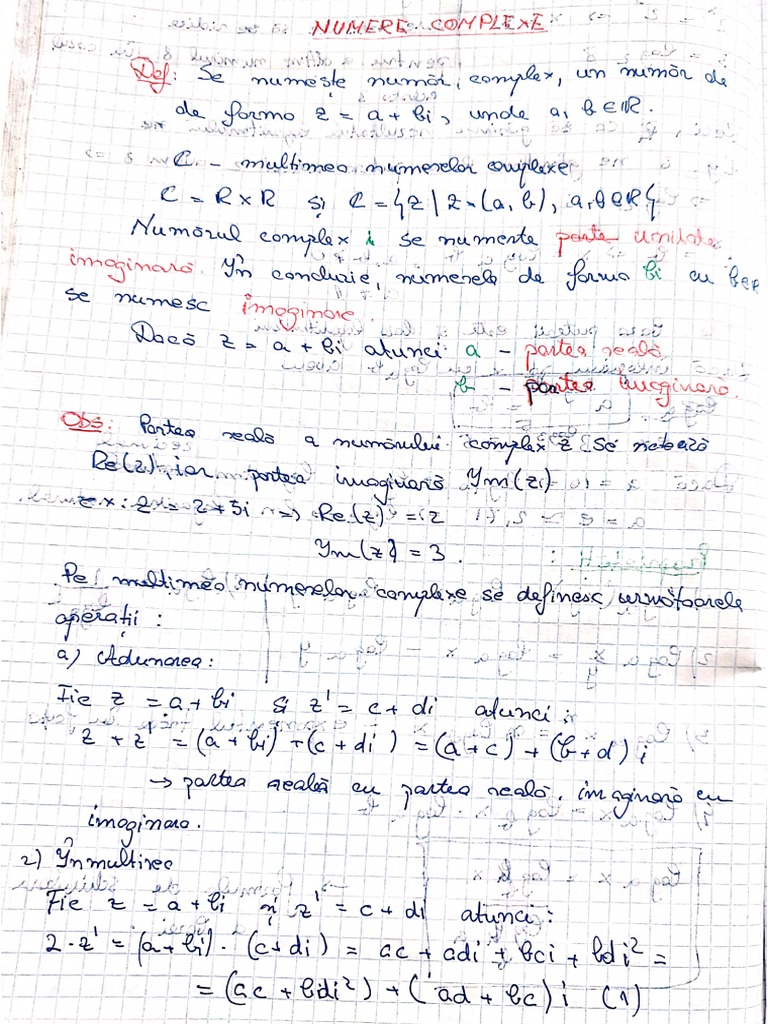 NUMERE COMPLEXE
Def: Se numește număr complex, un număr de
de forma z = a + bi, unde a, b ∈ R.
C - multimea numerelor complexe
C = R × R și C = {z | z = (a, b), a, b ∈ R}
Numărul complex i se numeste parte unitate
imaginară. În concluzie, numerele de forma bi cu b∈R
se numesc imaginare.
Dacă z = a + bi atunci a - partea reală
b - partea imaginară.
Obs: Partea reală a numărului complex z se notează
Re(z), iar partea imaginară Ym(z)
ex: z = 2 + 3i => Re(z) = 2
Ym(z) = 3.
Pe multimea numerelor complexe se definesc următoarele
operații:
a) Adunarea:
Fie z = a + bi și z' = c + di atunci:
z + z' = (a + bi) + (c + di) = (a + c) + (b + d) i
→ partea reală cu partea reală, imaginară cu
imaginara.
2) Înmultirea
Fie z = a + bi și z' = c + di atunci:
z · z' = (a + bi) · (c + di) = ac + adi + bci + bdi² =
= (ac + bdi²) + (ad + bc) i (1)